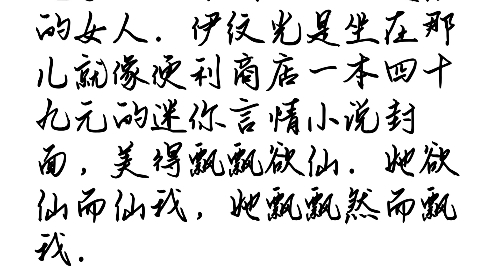 的女人.伊纹光是坐在那
儿就像便利商店一本四十
九元的迷你言情小说封
面,美得飘飘欲仙.她欲
仙而仙我,她飘飘然而飘
我.